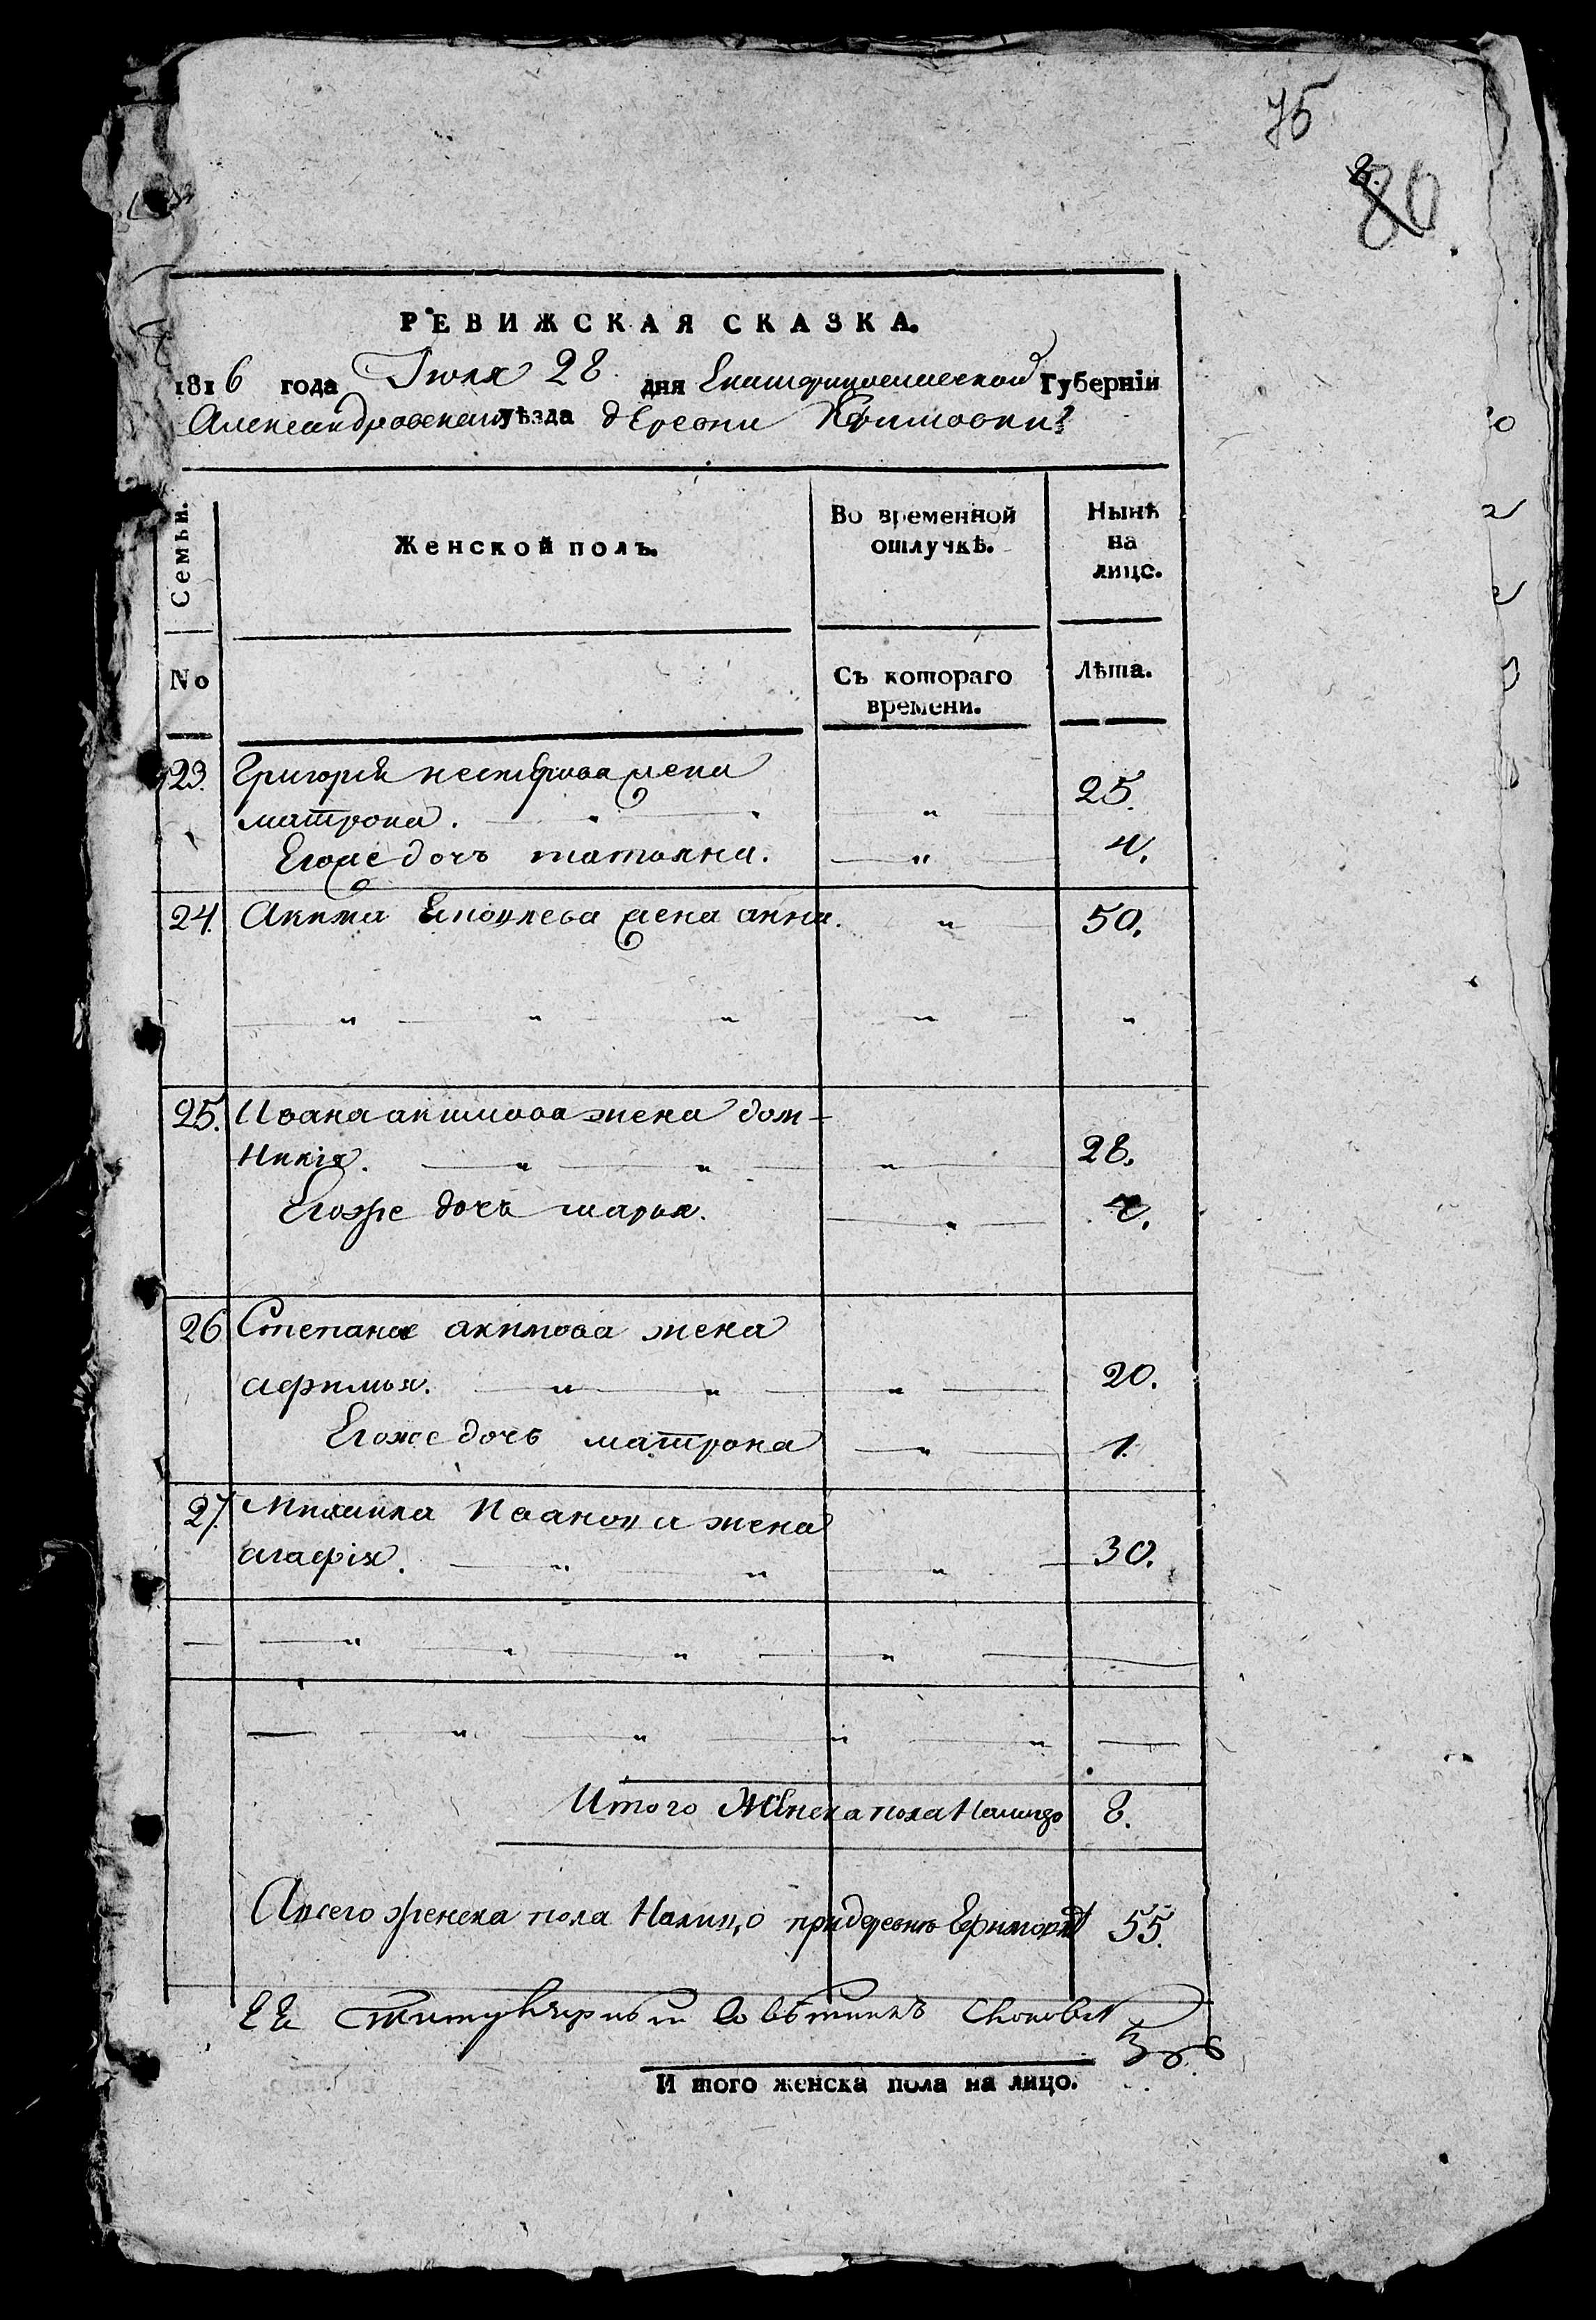 75
80
РЕВИЖСКАЯ СКАЗКА.
1816 года Июля 28 дня Екатеринославской Губерніи
Александровскаго уѣзда деревни Ефимовки
Семьи.
Женской полъ.
Во временной отлучкѣ.
Нынѣ на лицо.
No
Съ котораго времени.
Лѣта.
23. Григорія нестерова жена
матрона. " 25.
Егоже дочь татьяна. " 4.
24. Акима жена анна. " 50.
" " " " "
25. Ивана акимова жена дом-
никія. " " " 28.
Егоже дочь марья. "
26 Степана акимова жена
афимья. " " " 20.
Егоже дочь матрона " 1.
27. Михаила Иванова жена
агафія. " " " 30.
" " " "
" " " "
Итого Женска пола налицо 8.
Авсего женска пола налицо придеревне Ефимовке 55.
Титулярный Советникъ
И того женска пола на лицо.